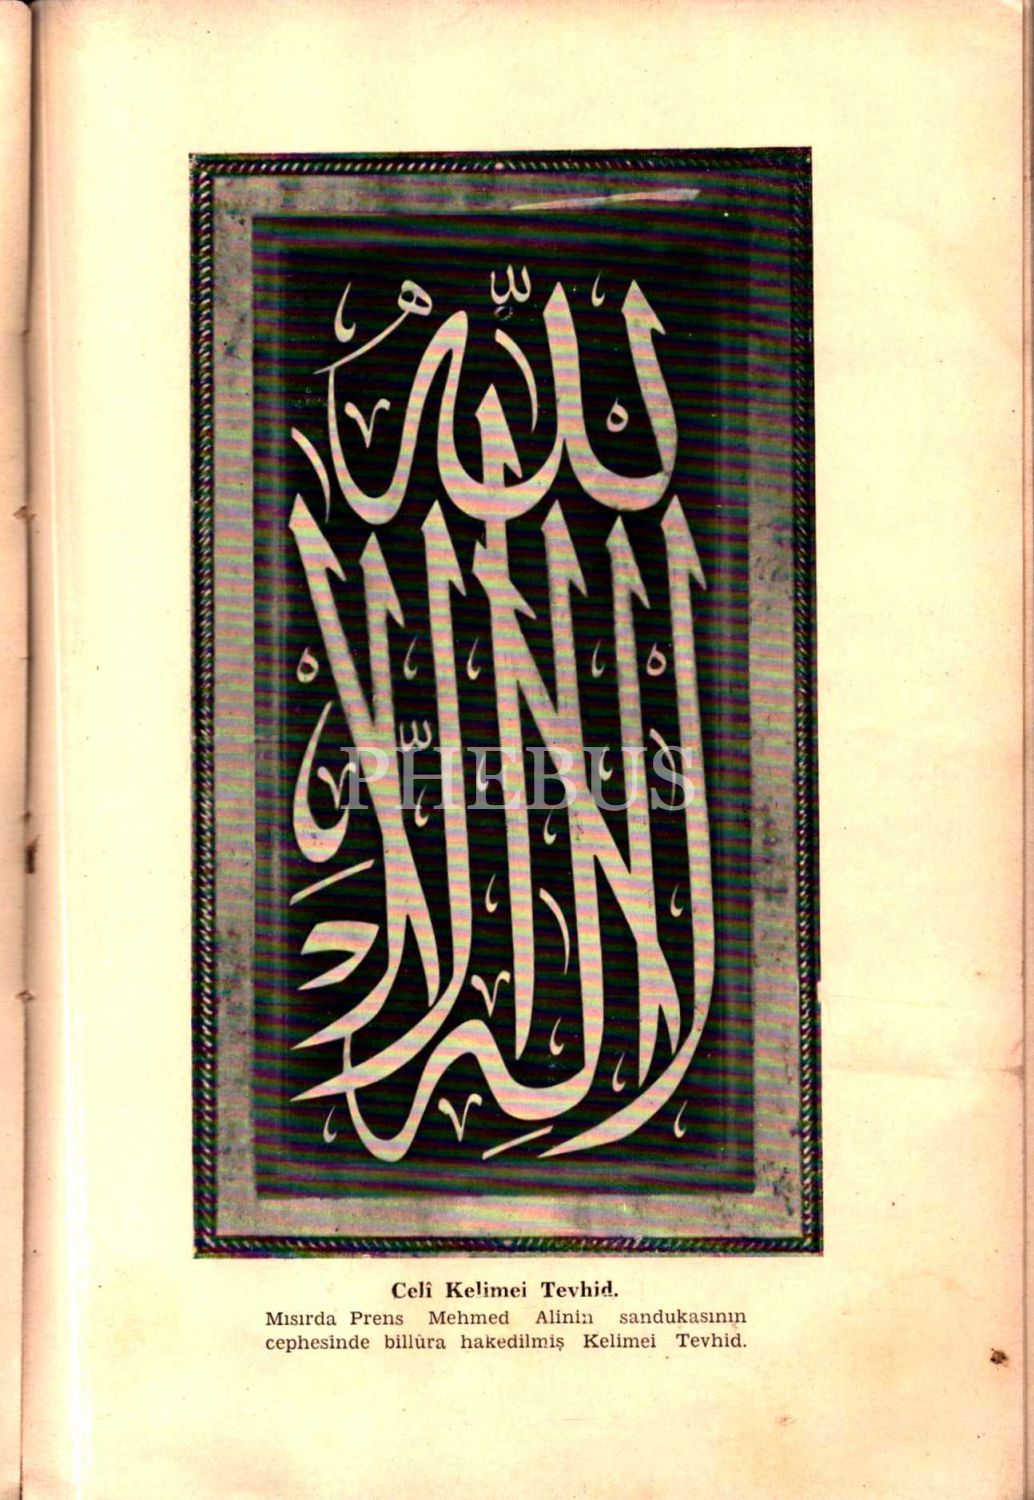 لا إله إلا الله
PHEBUS
Celî Kelimei Tevhid.
Mısırda Prens Mehmed Alinin sandukasının
cephesinde billûra hakedilmiş Kelimei Tevhid.